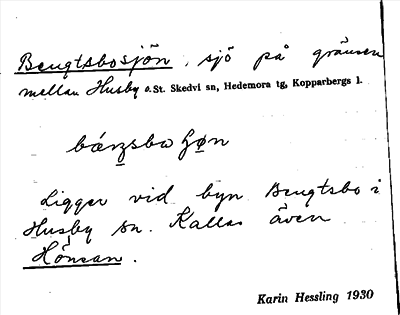 Bengtsbosjön, sjö på gränsen
mellan Husby o. St. Skedvi sn, Hedemora tg, Kopparbergs l.
Ligger vid byn Bengtsbo i
Husby sn. Kallas även
Hönsan.
Karin Hessling 1930